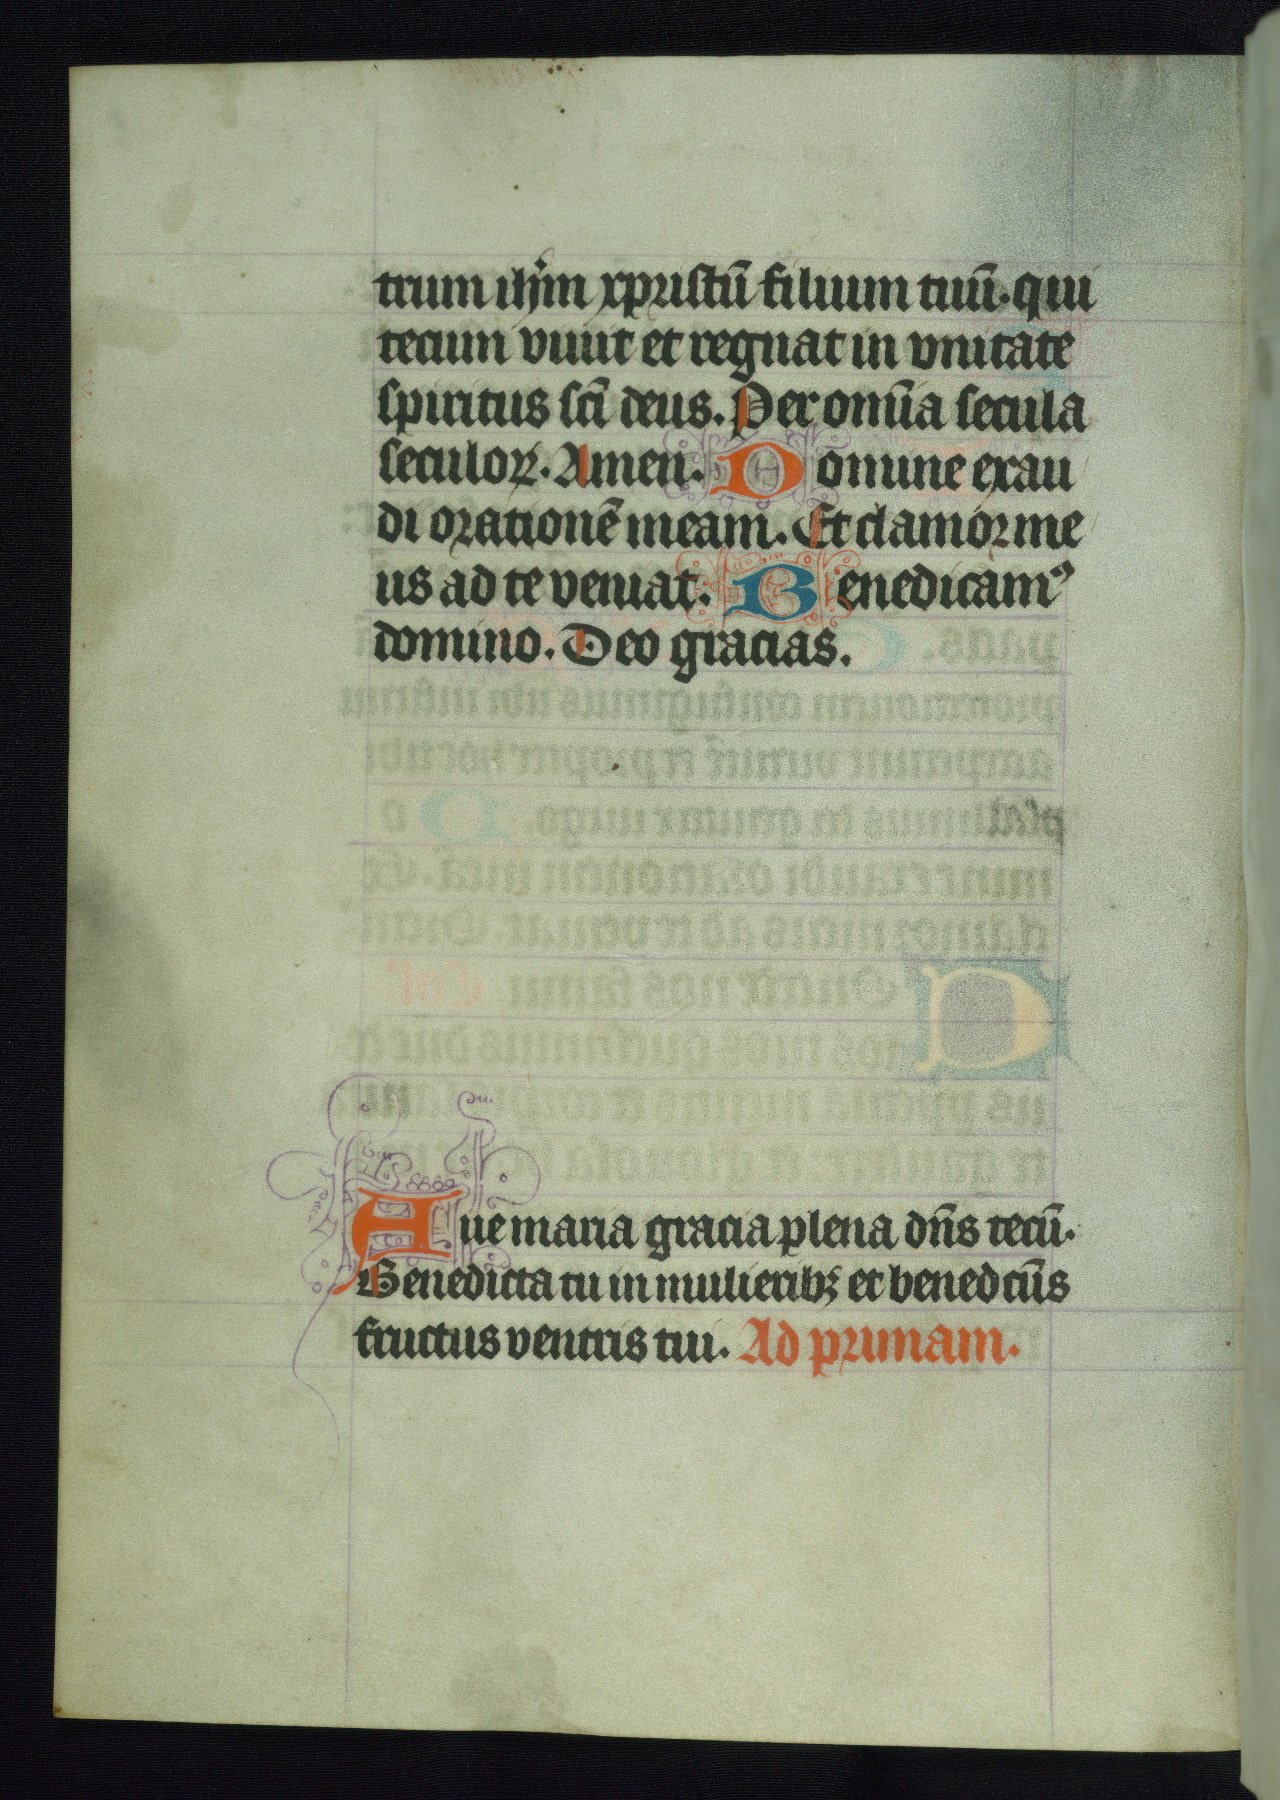 trum ihm̄ xpristū filium tuū. qui
tecum viuit et regnat in vnitate
spiritus scī deus. Per om̄ia secula
seculoꝝ. Amen. Domine exau
di orationē meam. Et clamor me
us ad te veniat. Benedicamꝰ
domino. Deo gracias.
Aue maria gracia plena dn̄s tecū.
Benedicta tu in mulieribꝫ et benedcūs
fructus ventris tui. Ad primam.